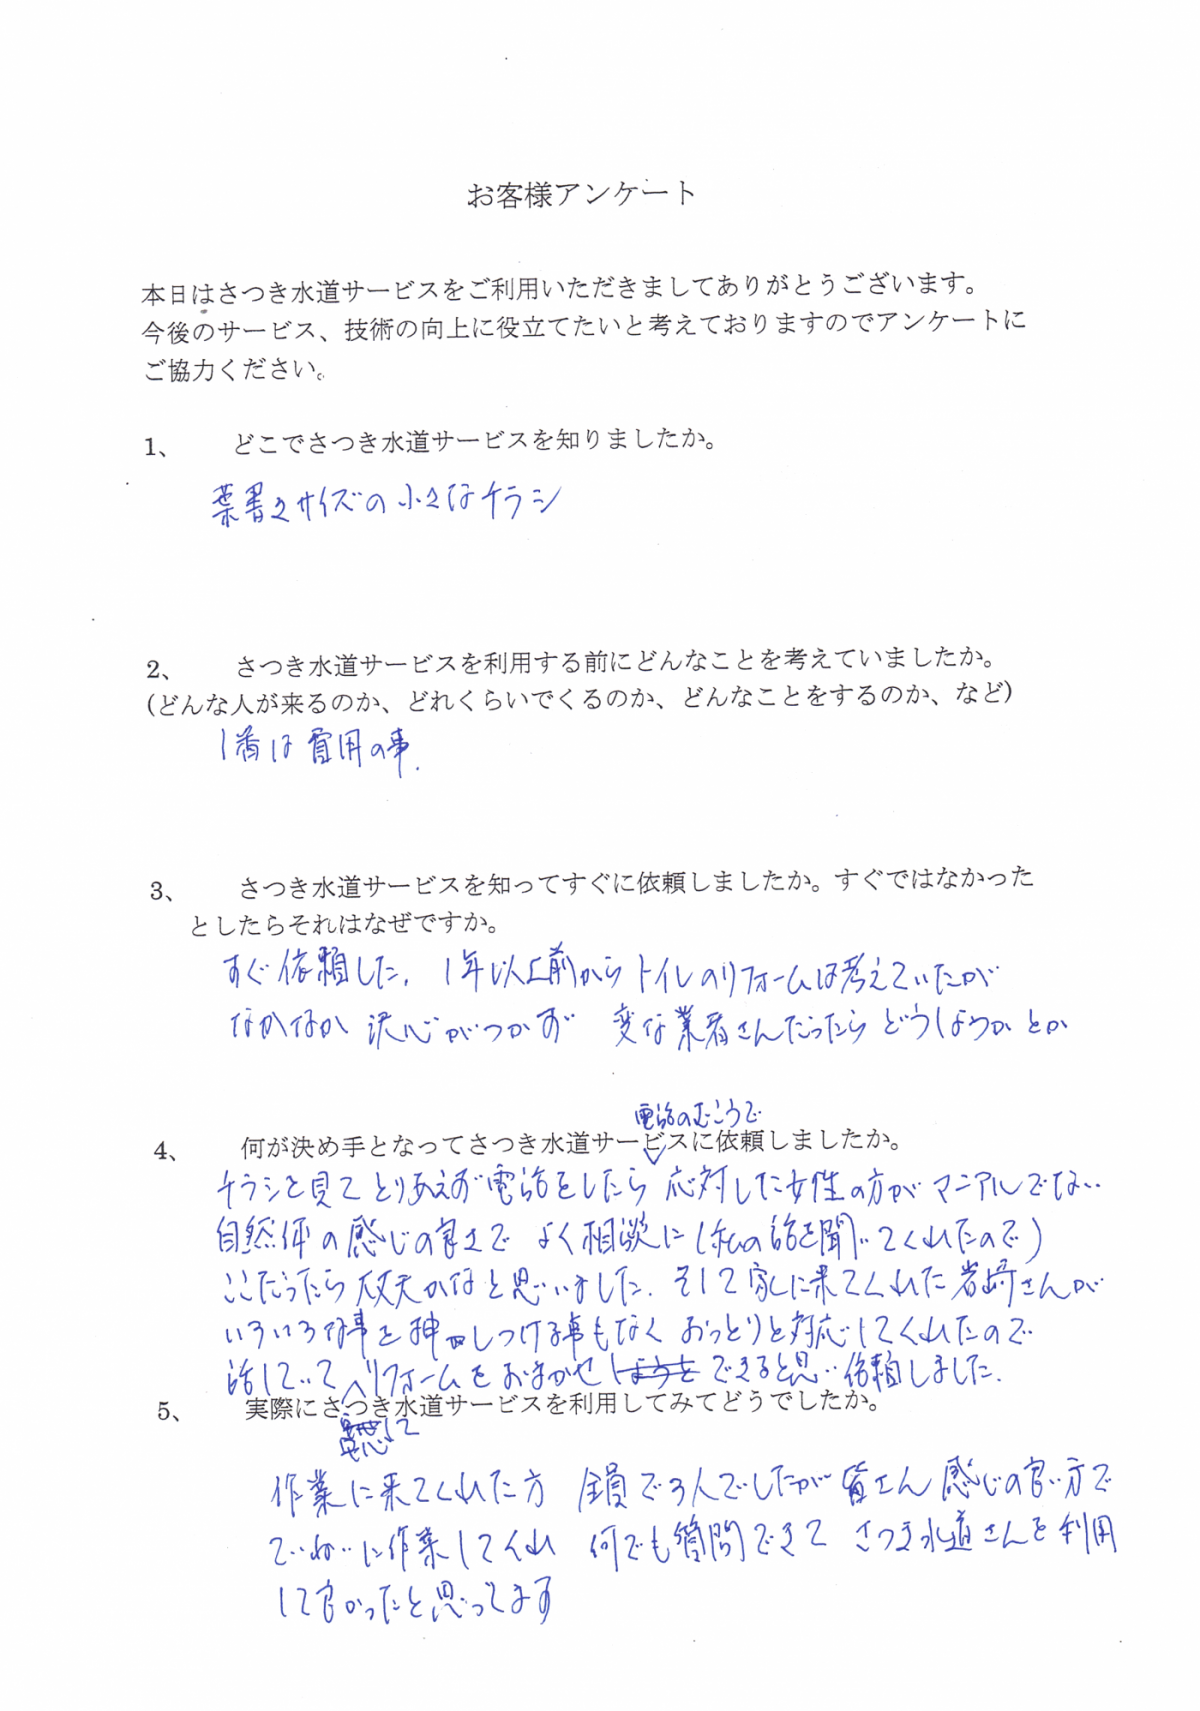 お客様アンケート
本日はさつき水道サービスをご利用いただきましてありがとうございます。
今後のサービス、技術の向上に役立てたいと考えておりますのでアンケートに
ご協力ください。
1、 どこでさつき水道サービスを知りましたか。
葉書きサイズの小さなチラシ
2、 さつき水道サービスを利用する前にどんなことを考えていましたか。
(どんな人が来るのか、どれくらいでくるのか、どんなことをするのか、など)
1番は費用の事.
3、 さつき水道サービスを知ってすぐに依頼しましたか。すぐではなかった
としたらそれはなぜですか。
すぐ依頼した. 1年以上前からトイレのリフォームは考えていたが
なかなか決心がつかず 変な業者さんだったらどうしようかとか
電話のむこうで
4、 何が決め手となってさつき水道サービスに依頼しましたか。
チラシを見てとりあえず電話をしたら応対した女性の方がマニアルでない
自然体の感じの良さで よく相談に(私の話を聞いてくれたので)
ここだったら大丈夫かなと思いました. そして家に来てくれた岩崎さんが
いろいろな事を押しつける事もなく おっとりと対応してくれたので
話していてリフォームをおまかせしようとできると思い依頼しました.
5、 実際にさつき水道サービスを利用してみてどうでしたか。
安心して
作業に来てくれた方 全員で3人でしたが皆さん感じの良い方で
ていねいに作業してくれ 何でも質問できて さつき水道さんを利用
して良かったと思ってます